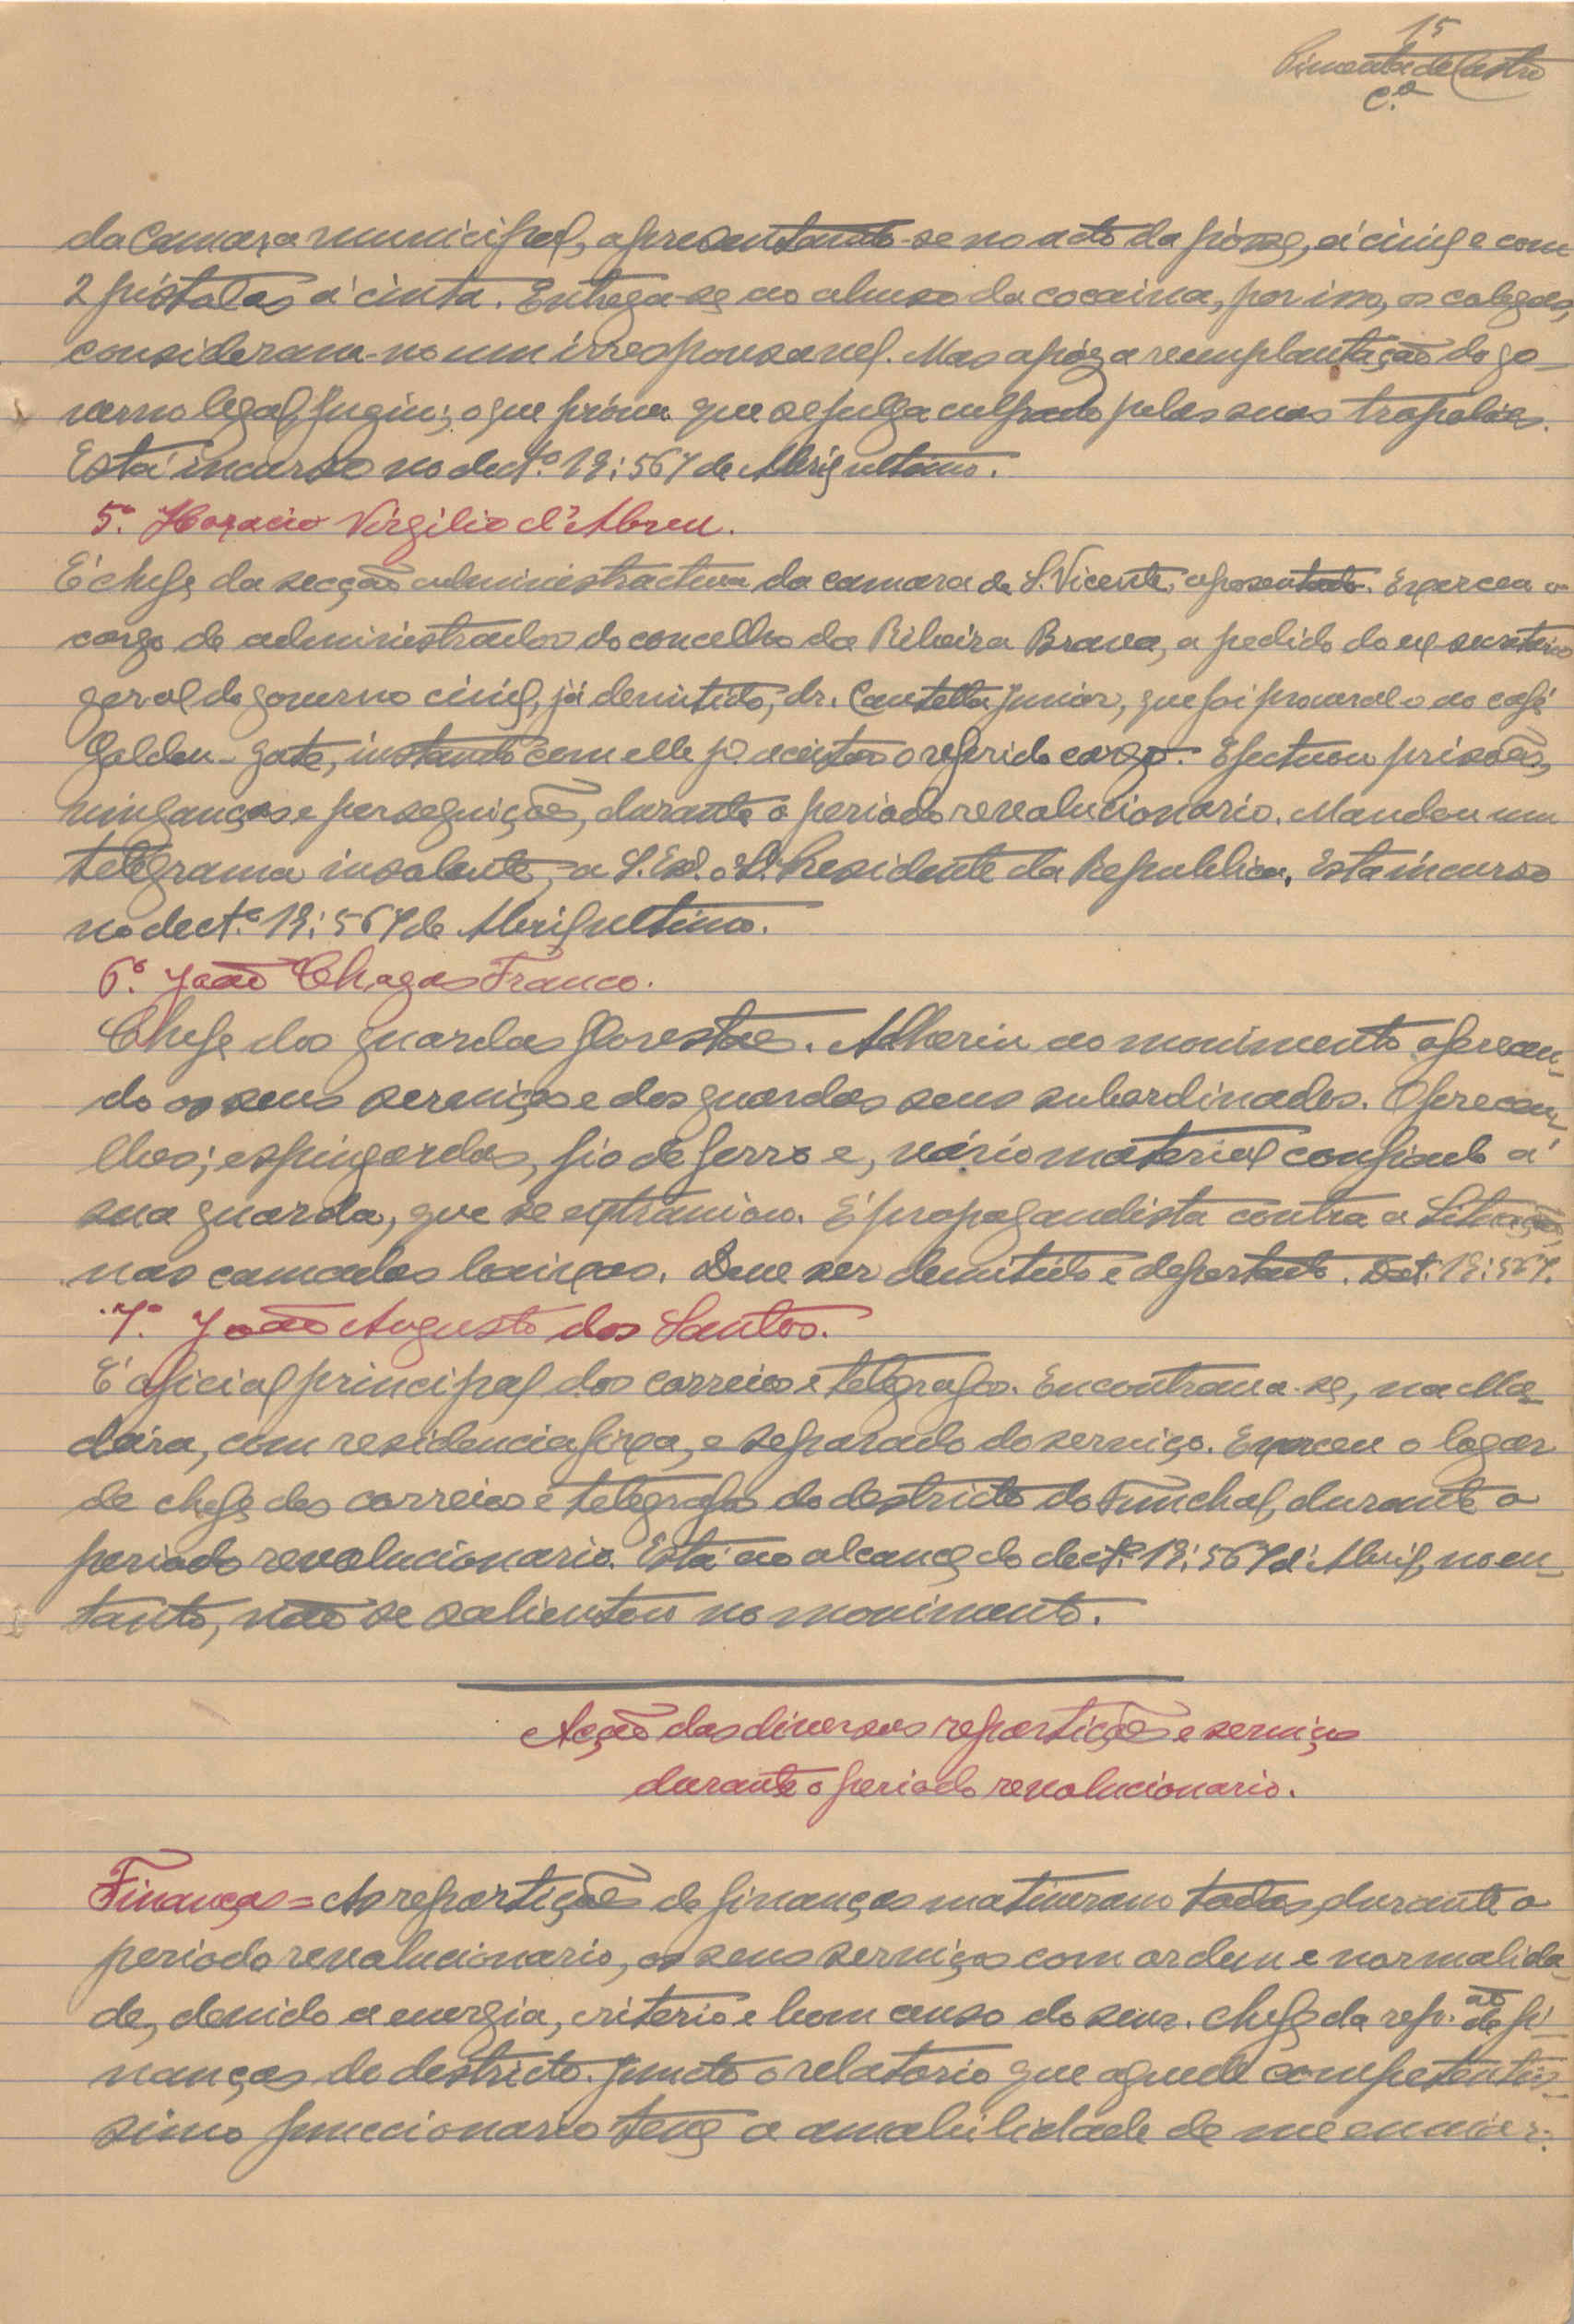 15
Pimenta de Castro
C.º
da Camara municipal, apresentando-se no acto da pósse, á civil e com
2 pistolas á cinta. Entrega-se ao abuso da cocaina, por isso, os colegas,
consideram-no um irresponsavel. Mas após a reimplantação do go-
verno legal, fugiu; o que próva que se julga culpado pelas suas tropelias.
Está incurso no dect.º 19:567 de Abril ultimo.
5.º Horacio Virgilio d'Abreu.
É chefe da secção administractiva da camara de S. Vicente, aposentado. Exerceu o
cargo de administrador do concelho da Ribeira Brava, a pedido do ex-secretario
geral do governo civil, já demitido, dr. Cautella Junior, que foi procural-o ao café
Golden-gate, instando com elle p.ª aceitar o referido cargo. Efectuou prisões,
vinganças e perseguições, durante o periodo revolucionario. Mandou um
telegrama insolente, a S. Ex.ª o Sr. Presidente da Republica. Está incurso
no dect.º 19:567 de Abril ultimo.
6.º João Chagas Franco.
Chefe dos guardas florestaes. Adheriu ao movimento oferecen-
do os seus serviços e dos guardas seus subordinados. Ofereceu-
lhes; espingardas, fio de ferro e, vário material confiado á
sua guarda, que se extraviou. É propagandista contra a Situação,
nas camadas baixas. Deve ser demitido e deportado. Dect.º 19:567.
7.º João Augusto dos Santos.
É oficial principal dos correios e telegrafos. Encontrava-se, na Ma-
deira, com residencia fixa, e separado do serviço. Exerceu o logar
de chefe dos correios e telegrafos do destricto do Funchal, durante o
periodo revolucionario. Está ao alcance do dect.º 19:567 d'Abril, no en-
tanto, não se salientou no movimento.
Acção das diversas repartições e serviços
durante o periodo revolucionario.
Finanças = As repartições de finanças mativeram todas, durante o
periodo revolucionario, os seus serviços com ordem e normalida-
de, devido a energia, criterio e bom censo do seur. chefe da rep.ão de fi-
nanças do destricto. Juncto o relatorio que aquele competentis-
simo funccionario teve a amabilidade de me enviar.